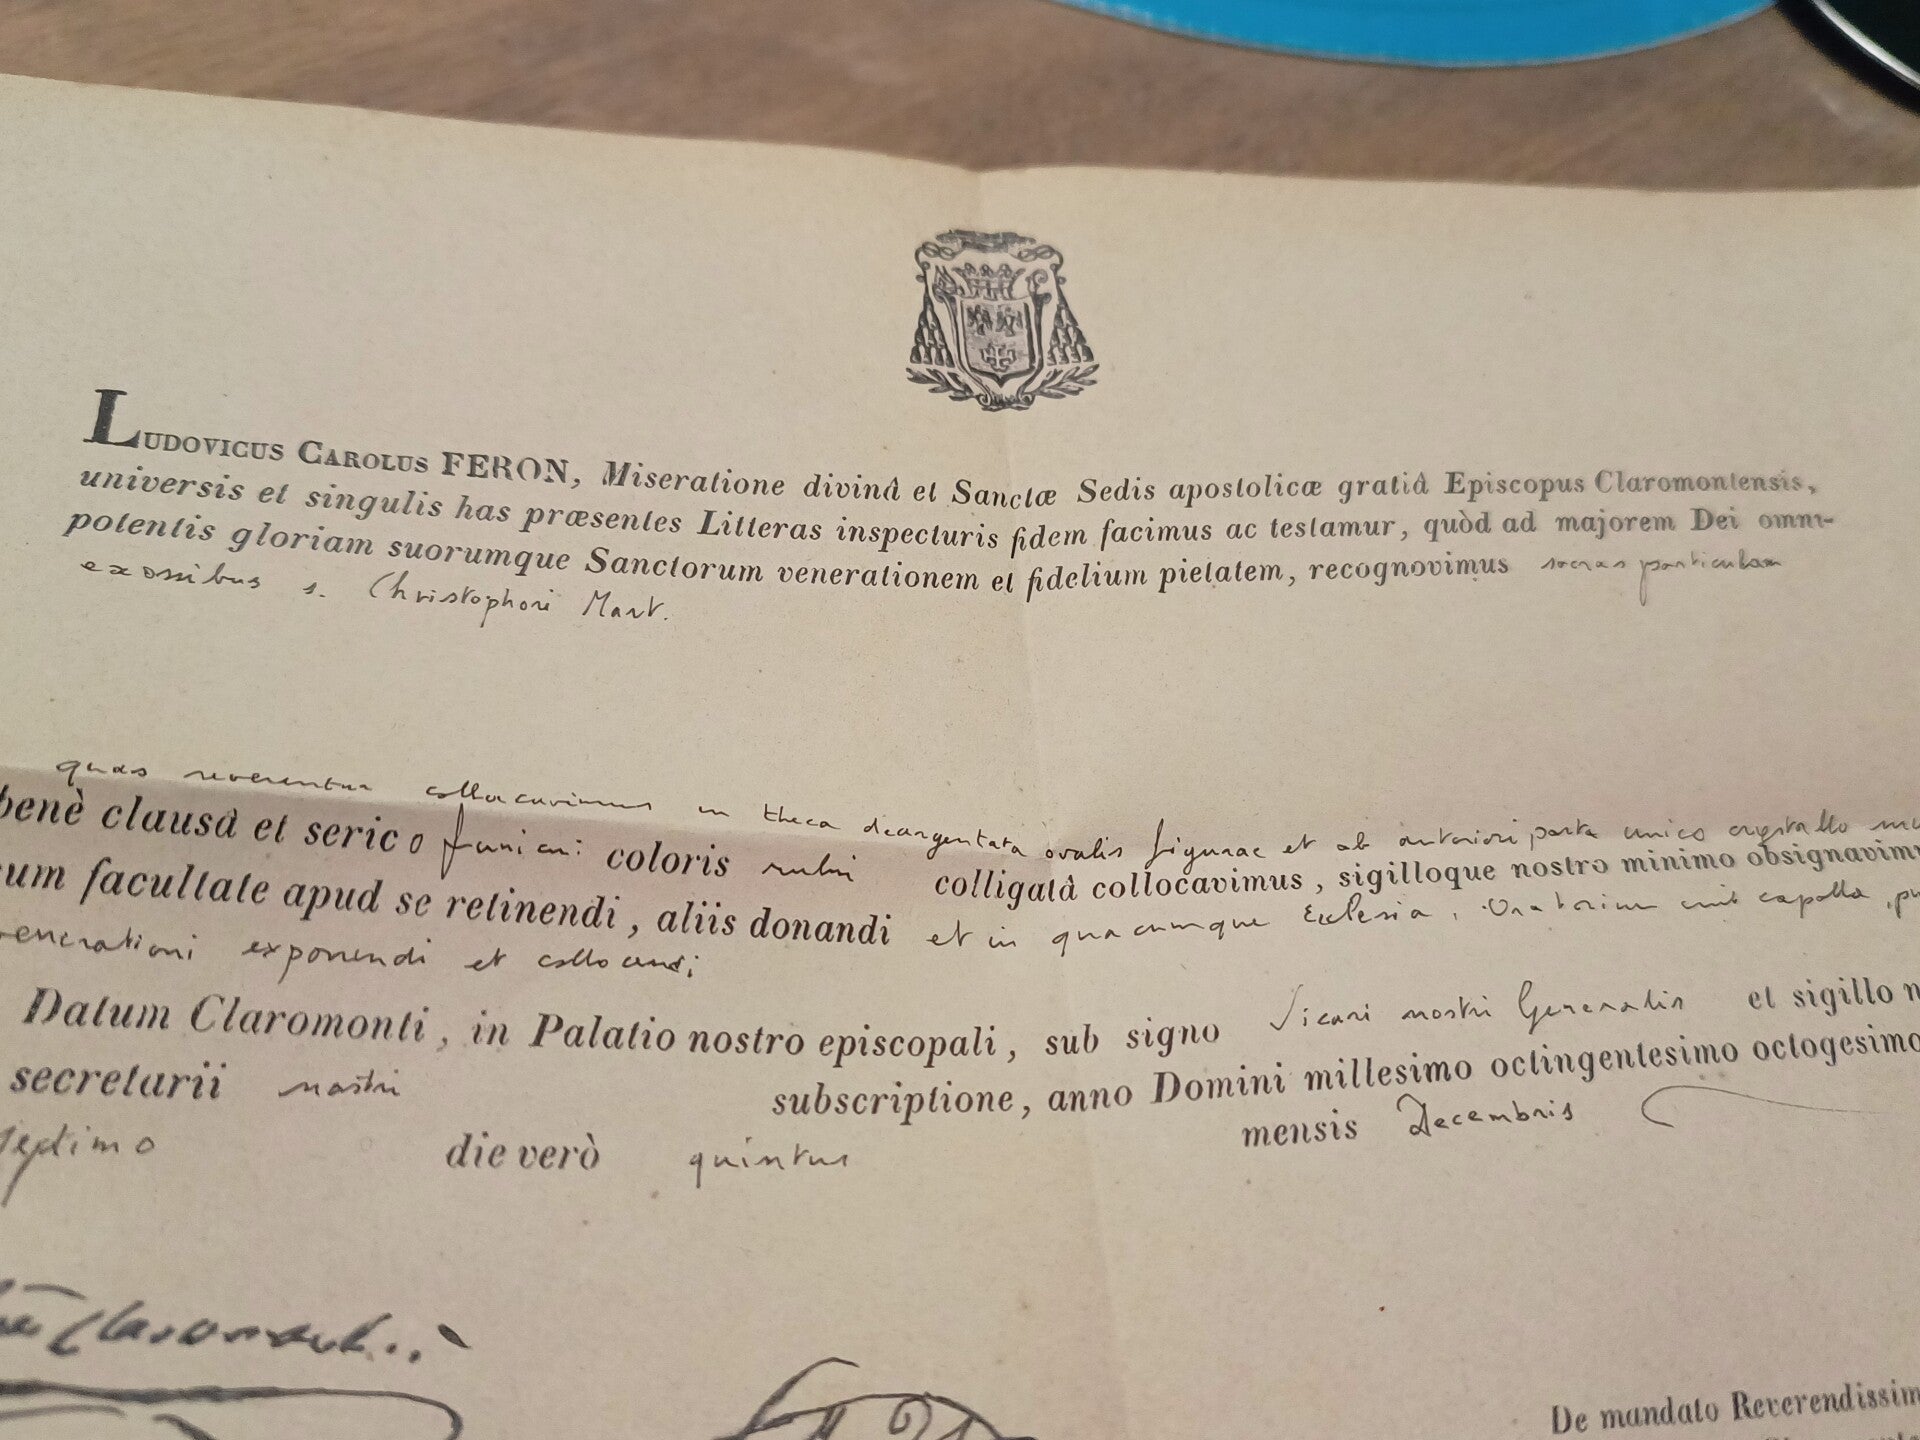 LUDOVICUS CAROLUS FERON, Miseratione divinâ et Sanctæ Sedis apostolicæ gratiâ Episcopus Claromontensis,
universis et singulis has præsentes Litteras inspecturis fidem facimus ac testamur, quòd ad majorem Dei omni-
potentis gloriam suorumque Sanctorum venerationem et fidelium pietatem, recognovimus sacras particulas
ex ossibus s. Christophori Mart.
quas reverenter collocavimus in theca deargentata ovalis figurae et ab anteriori parte unico crystallo
benè clausâ et serico funiculi coloris rubri colligatâ collocavimus, sigilloque nostro minimo obsignavim
cum facultate apud se retinendi, aliis donandi et in quacumque Ecclesia, Oratorium capella,
venerationi exponendi et collocandi
Datum Claromonti, in Palatio nostro episcopali, sub signo Vicari nostri Generalis et sigillo n
secretarii nostri subscriptione, anno Domini millesimo octingentesimo octogesimo
septimo die verò quintus mensis Decembris
De mandato Reverendissim